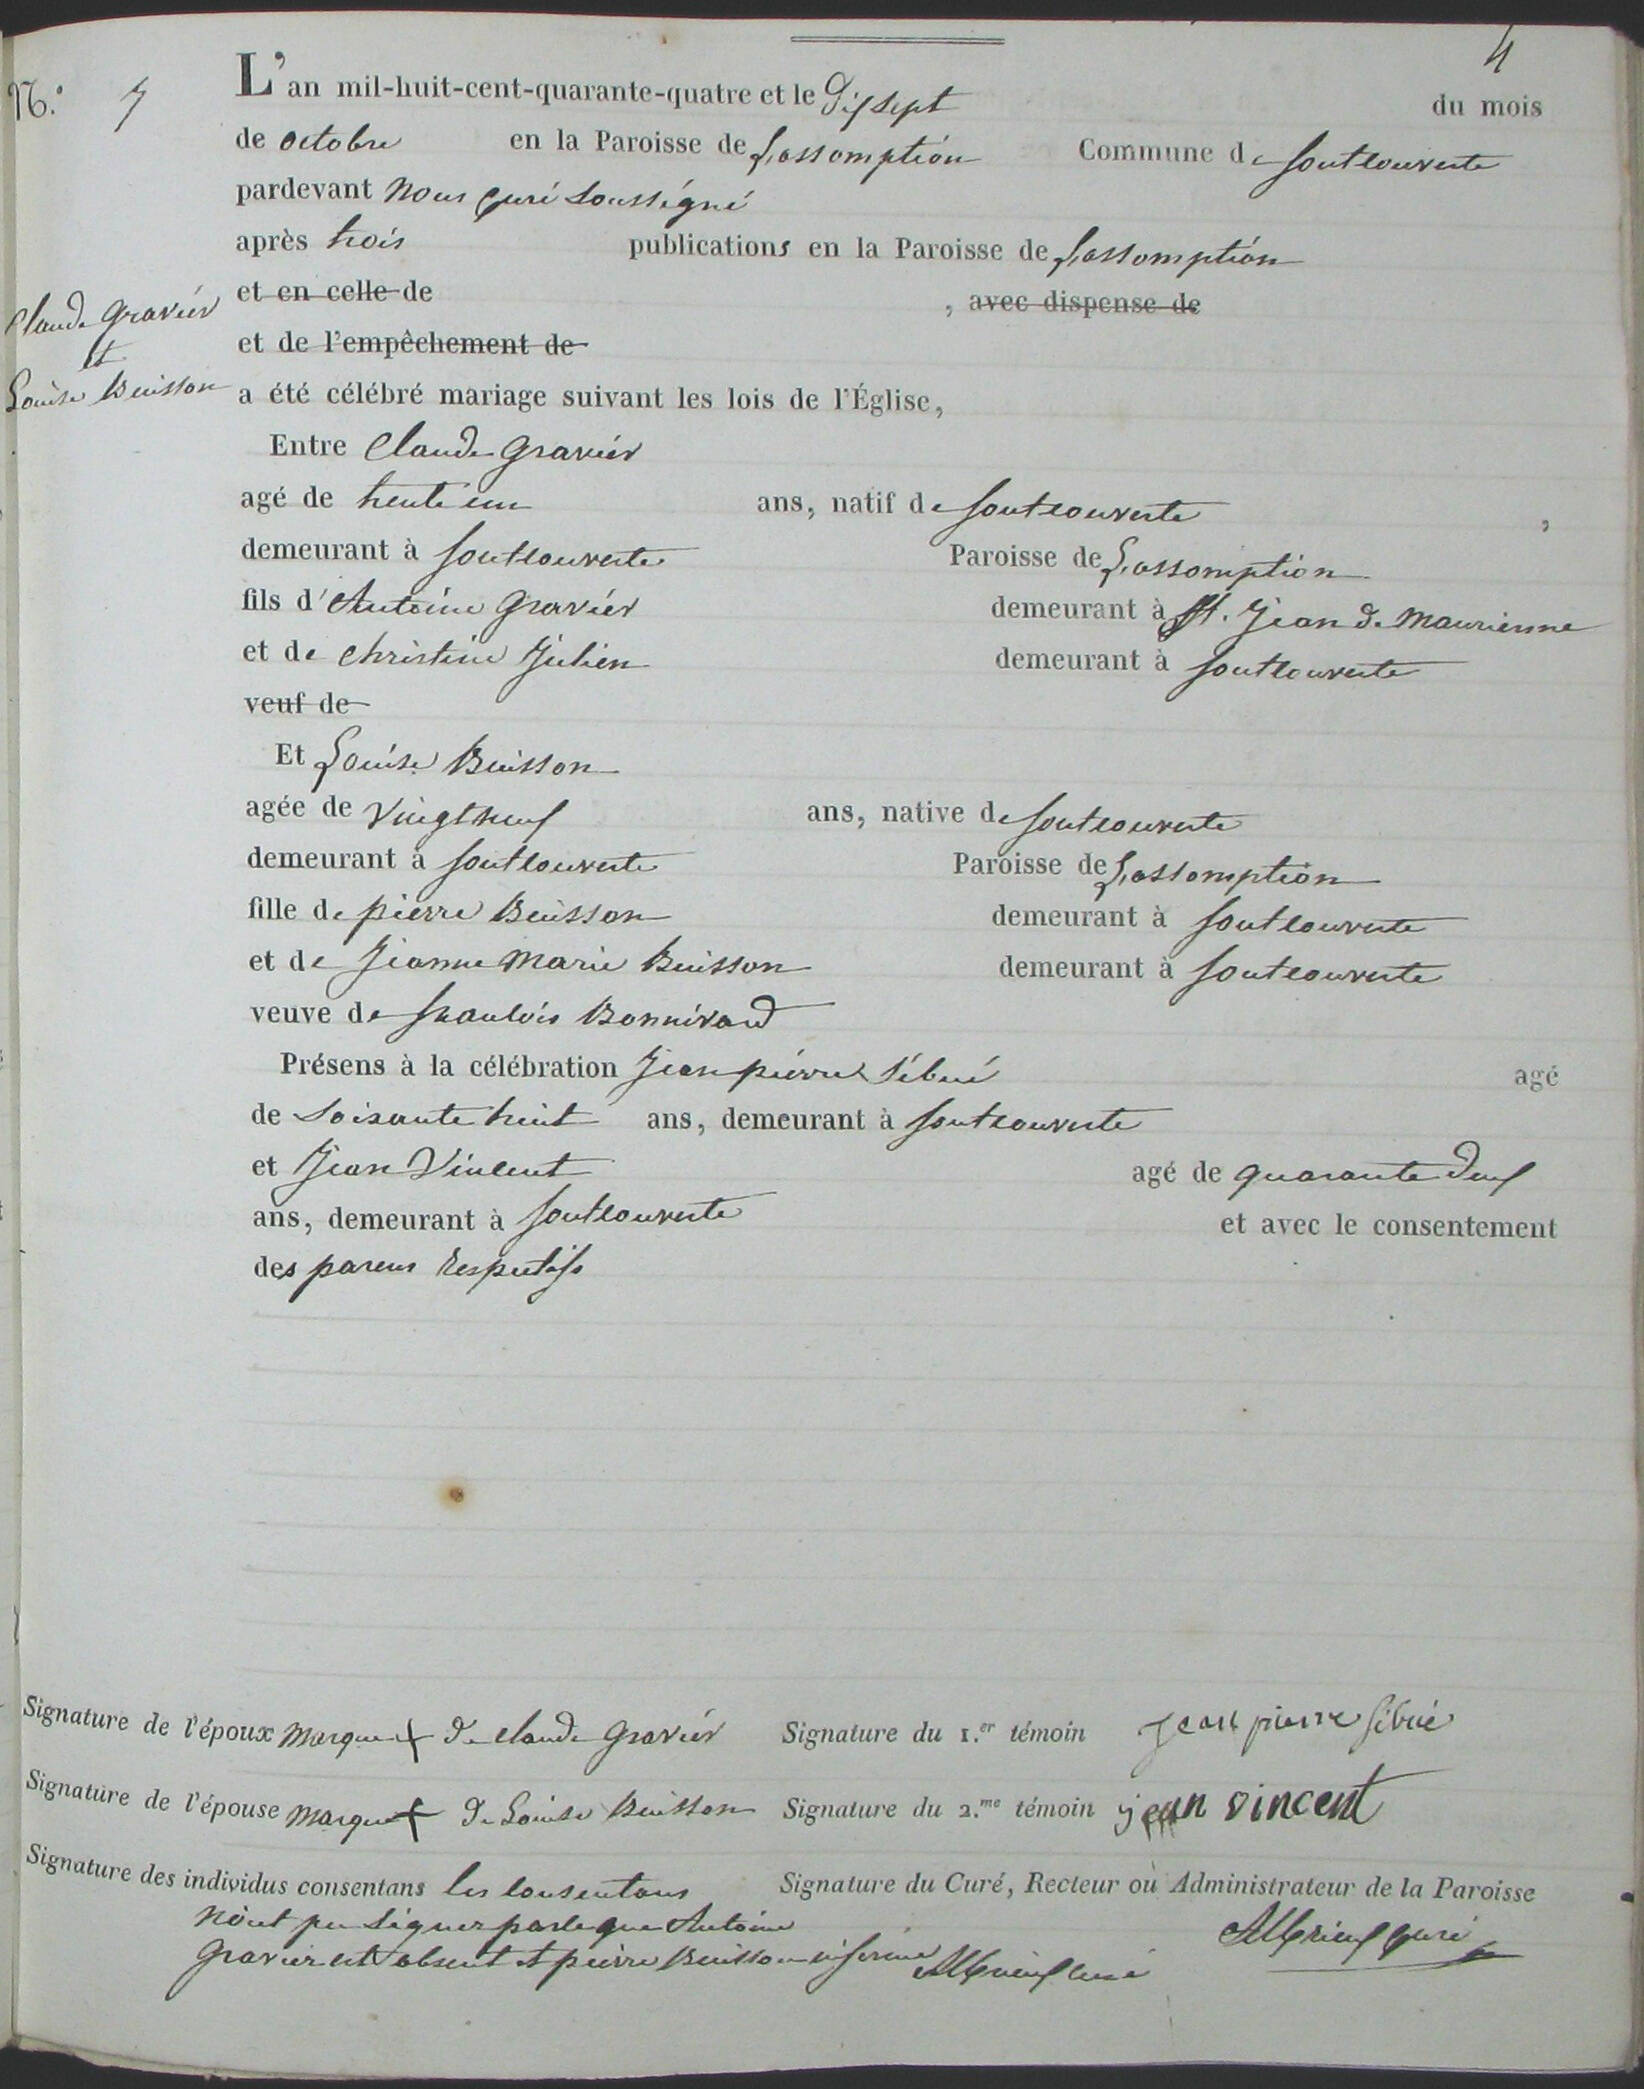 4
N.° 7
L'an mil-huit-cent-quarante-quatre et le dix sept du mois
de octobre en la Paroisse de L'assomption Commune de fontcouverte
pardevant nous curé soussigné
après trois publications en la Paroisse de L'assomption
et en celle de , avec dispense de
et de l'empêchement de
Claude Gravier
et
Louise Buisson
a été célébré mariage suivant les lois de l'Église,
Entre Claude Gravier
agé de trente un ans, natif de fontcouverte ,
demeurant à fontcouverte Paroisse de L'assomption
fils d'Antoine Gravier demeurant à St. Jean de Maurienne
et de christine Julien demeurant à fontcouverte
veuf de
Et Louise Buisson
agée de vingt neuf ans, native de fontcouverte
demeurant à fontcouverte Paroisse de L'assomption
fille de pierre Buisson demeurant à fontcouverte
et de Jeanne Marie Buisson demeurant à fontcouverte
veuve de Bonnivard
Présens à la célébration Jean pierre Sibué agé
de soixante huit ans, demeurant à fontcouverte
et Jean Vincent agé de quarante deux
ans, demeurant à fontcouverte et avec le consentement
des parens respectifs
Signature de l'époux marque + de claude Gravier Signature du 1.er témoin jean pierre Sibué
Signature de l'épouse marque + de Louise Buisson Signature du 2.me témoin jean vincent
Signature des individus consentans les consentans Signature du Curé, Recteur ou Administrateur de la Paroisse
n'ont pu signer parceque Antoine
Gravier est absent et pierre Buisson curé
curé